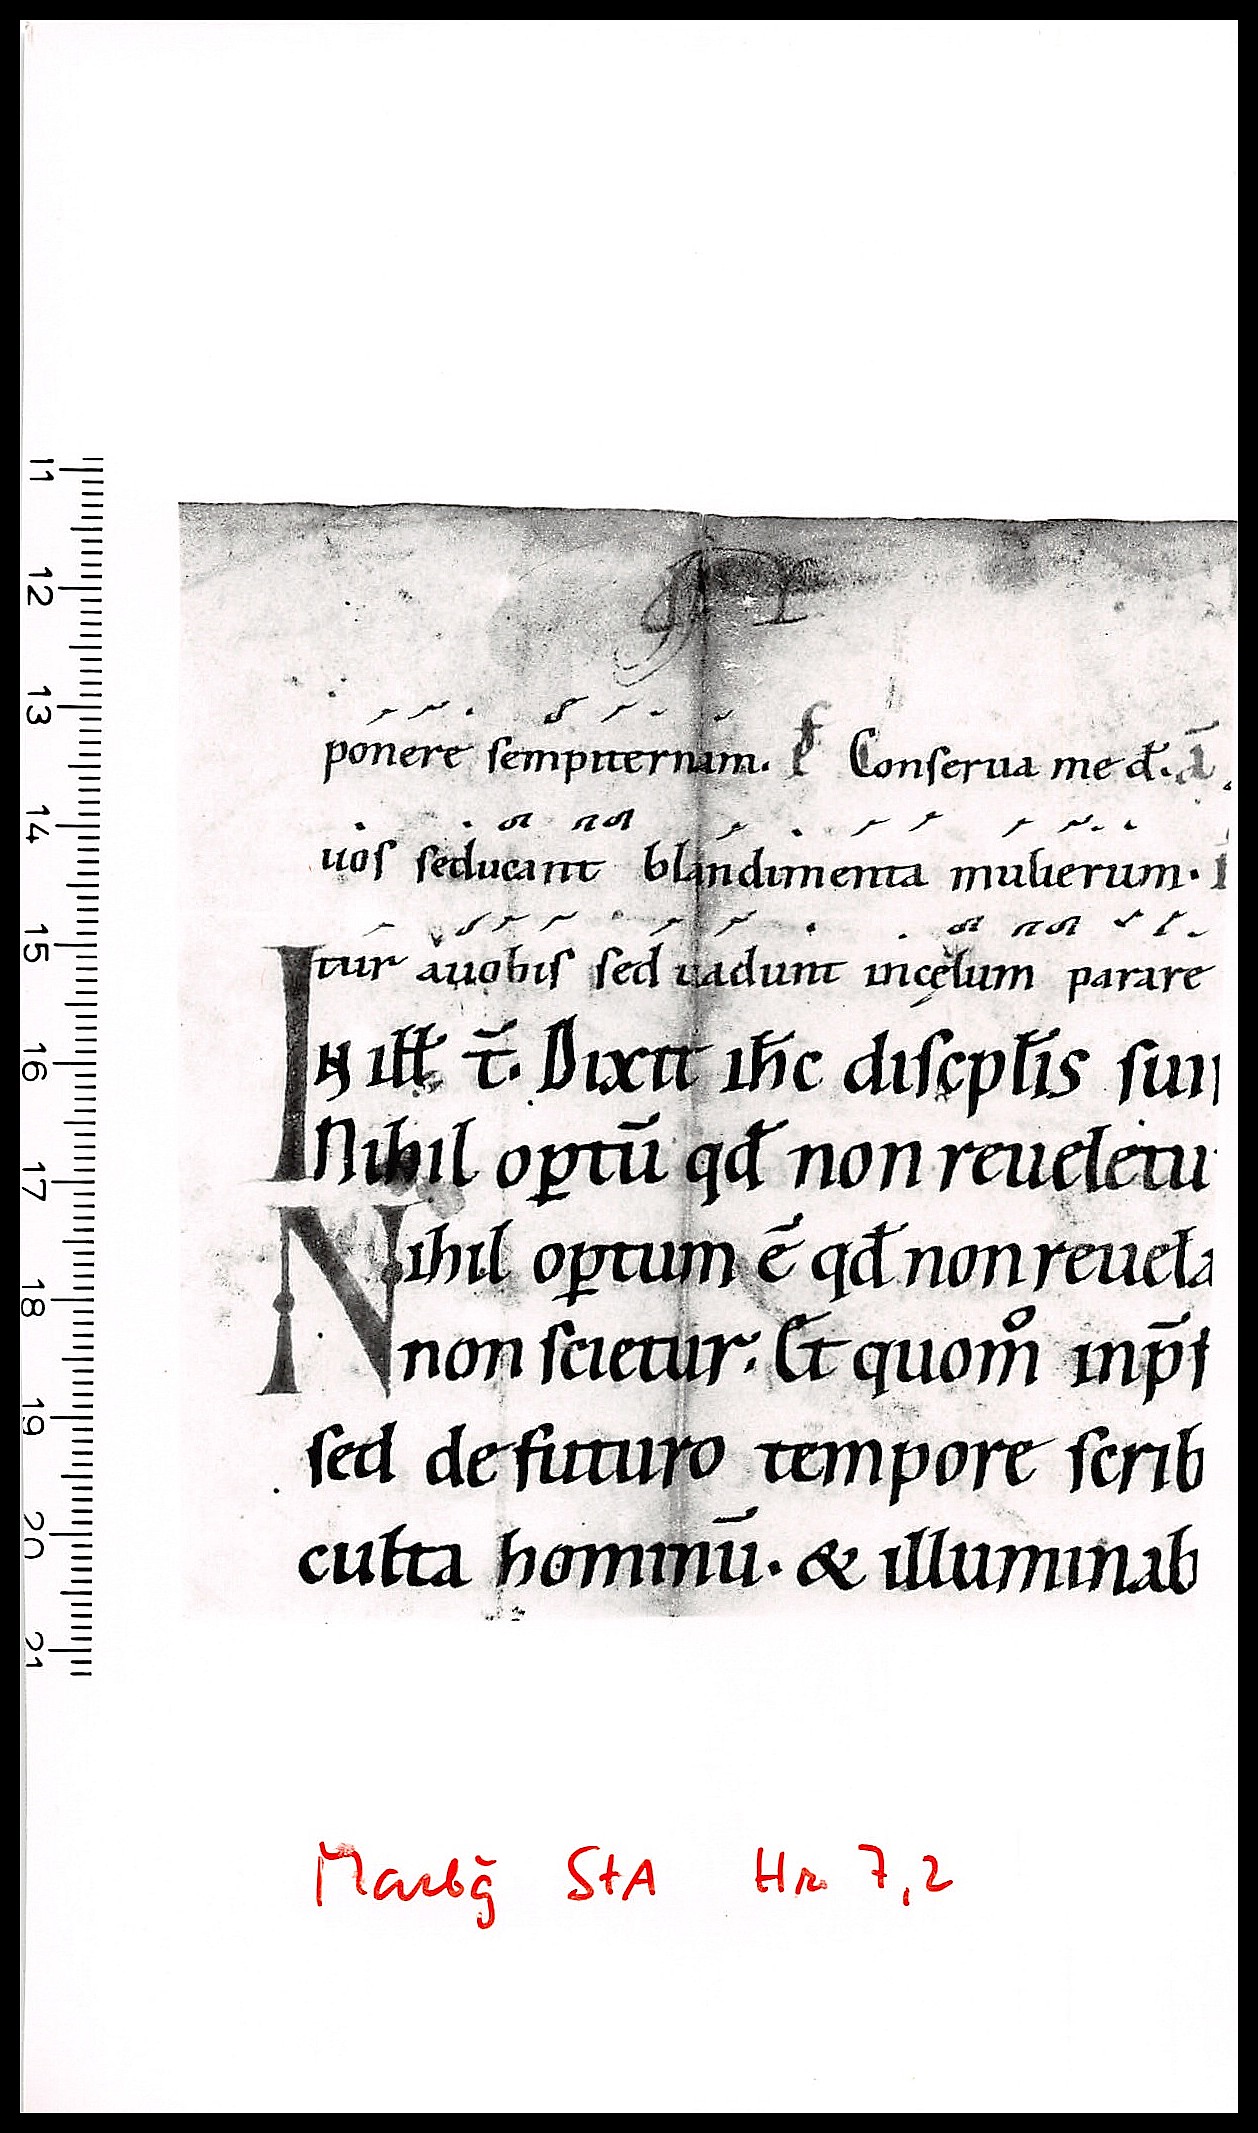 11
12
13
14
15
16
17
18
19
20
21
ponere sempiternam. Ps Conserua me d̄. ā
uos seducant blandimenta mulierum.
tur auobis sed uadunt incęlum parare
IN ill̄ t̄. Dixit ih̄c discpl̄is sui
Nihil op̲tū qd̄ non reueletu
Nihil op̲tum ē qd̄ non reuela
non scietur. Et quom̊ inp̄
sed de futuro tempore scrib
culta hominū. & illuminab
Marbg̃ StA Hr 7,2